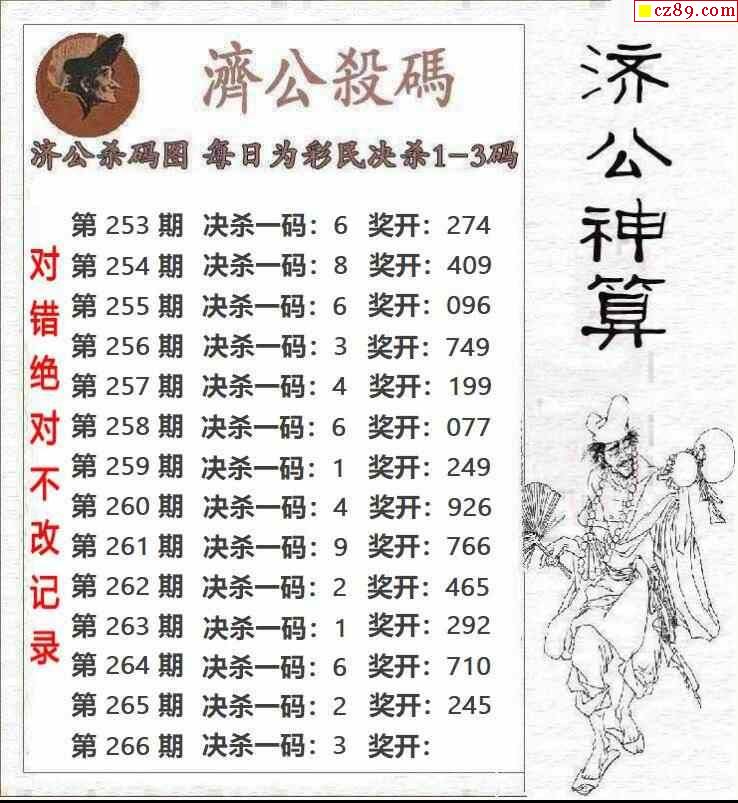 cz89.com
濟公殺碼
济公杀码图 每日为彩民决杀1-3码
第 253 期 决杀一码：6 奖开：274
第 254 期 决杀一码：8 奖开：409
第 255 期 决杀一码：6 奖开：096
第 256 期 决杀一码：3 奖开：749
第 257 期 决杀一码：4 奖开：199
第 258 期 决杀一码：6 奖开：077
第 259 期 决杀一码：1 奖开：249
第 260 期 决杀一码：4 奖开：926
第 261 期 决杀一码：9 奖开：766
第 262 期 决杀一码：2 奖开：465
第 263 期 决杀一码：1 奖开：292
第 264 期 决杀一码：6 奖开：710
第 265 期 决杀一码：2 奖开：245
第 266 期 决杀一码：3 奖开：
对错绝对不改记录
济公神算